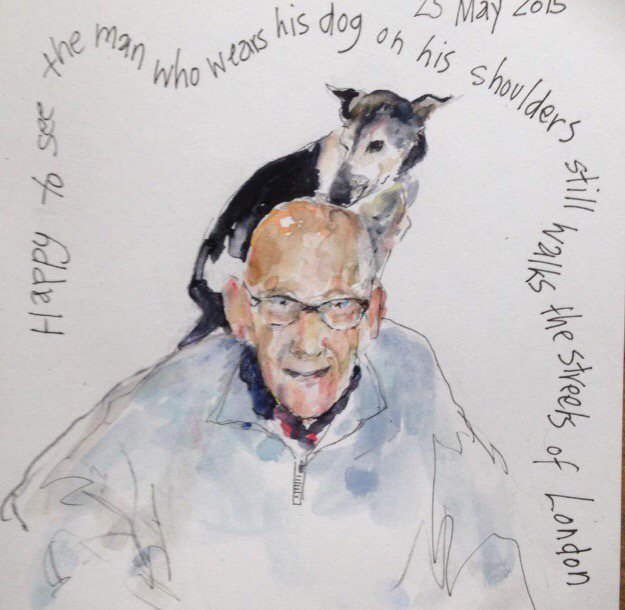 25 May 2015
Happy to see the man who wears his dog on his shoulders still walks the streets of London